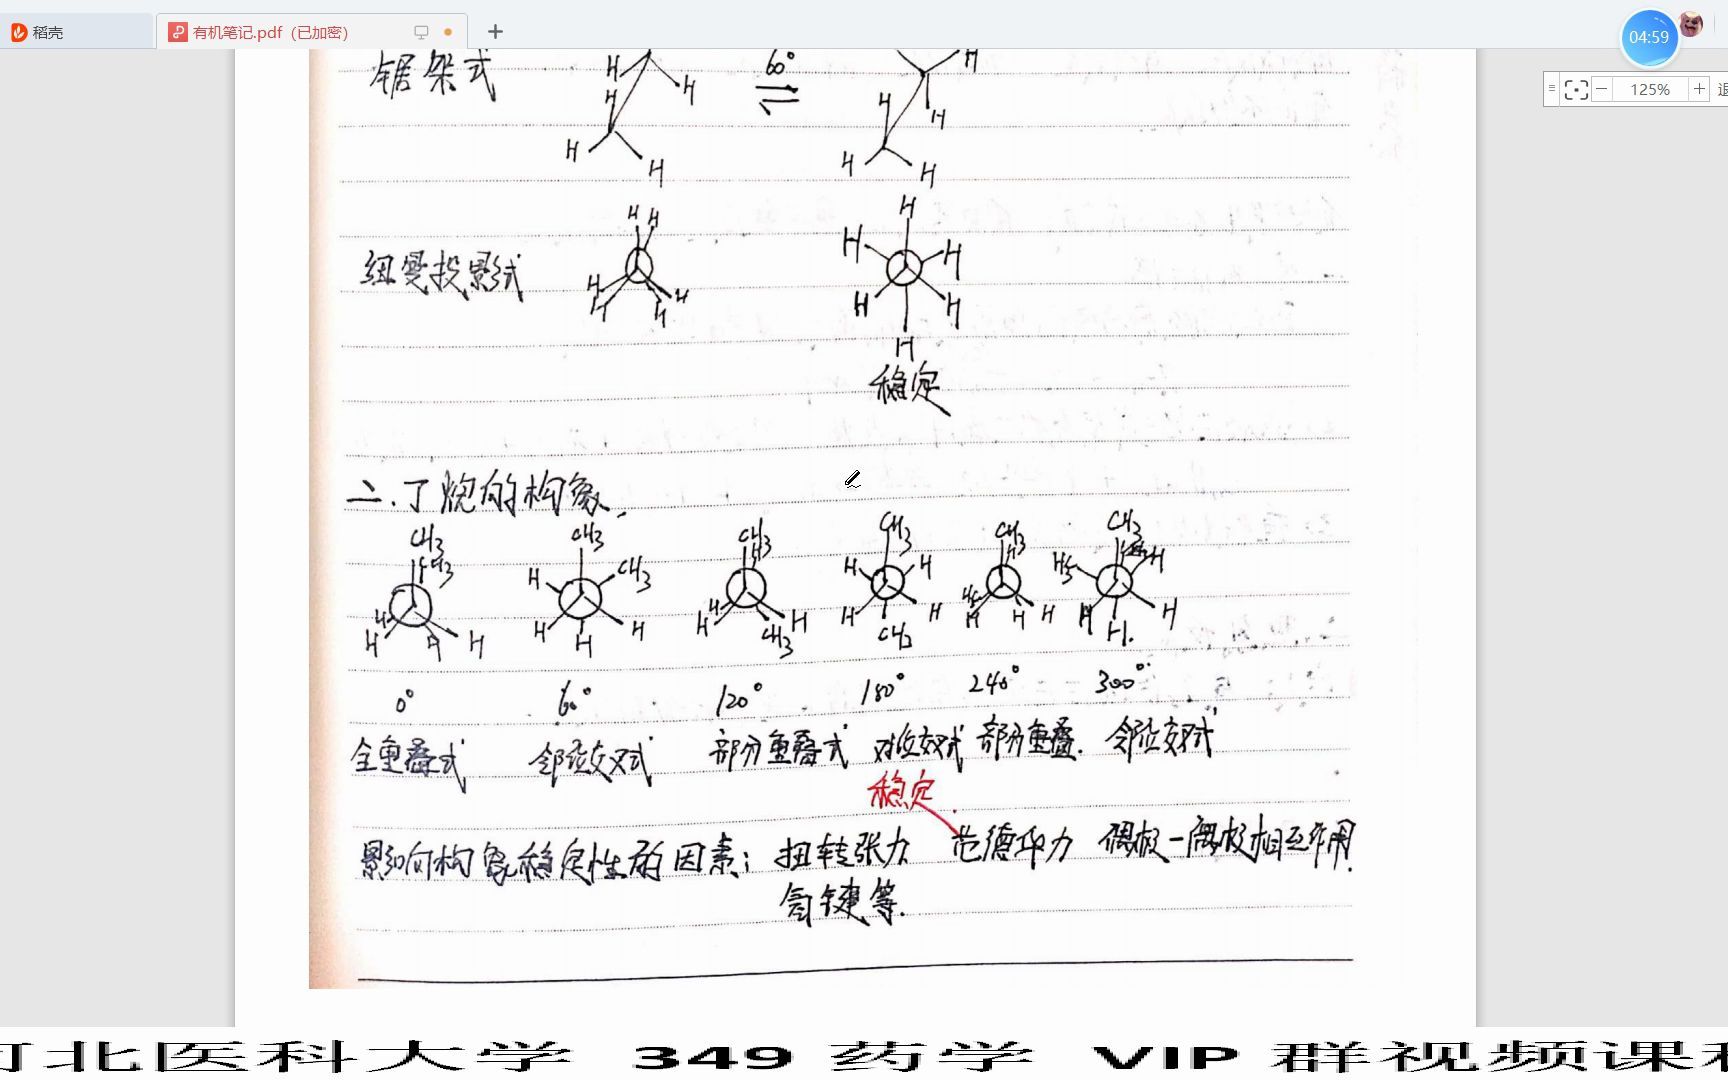 稻壳
有机笔记.pdf（已加密）
04:59
125%
锯架式
H H H 60° H H H
H H H H
纽曼投影式
H H H H H H
H H H H H H
稳定
二.丁烷的构象.
CH3 CH3 CH3 CH3 CH3 CH3
CH3 H CH3 H H H H H3C H
H H H H H H H H CH3 H H CH3 H H H H H H H
0° 60° 120° 180° 240° 300°
全重叠式 邻位交叉式 部分重叠式 对位交叉式 部分重叠. 邻位交叉式
稳定
影响构象稳定性的因素: 扭转张力 范德华力 偶极-偶极相互作用.
氢键等.
河北医科大学 349 药学 VIP 群视频课程